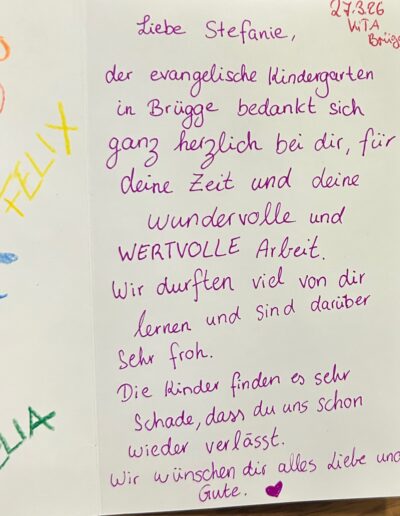 27.3.26
KiTA
Liebe Stefanie,
der evangelische Kindergarten
in Brügge bedankt sich
ganz herzlich bei dir, für
deine Zeit und deine
wundervolle und
WERTVOLLE Arbeit.
Wir durften viel von dir
lernen und sind darüber
sehr froh.
Die Kinder finden es sehr
Schade, dass du uns schon
wieder verlässt.
Wir wünschen dir alles Liebe und
Gute. ♥
FELIX